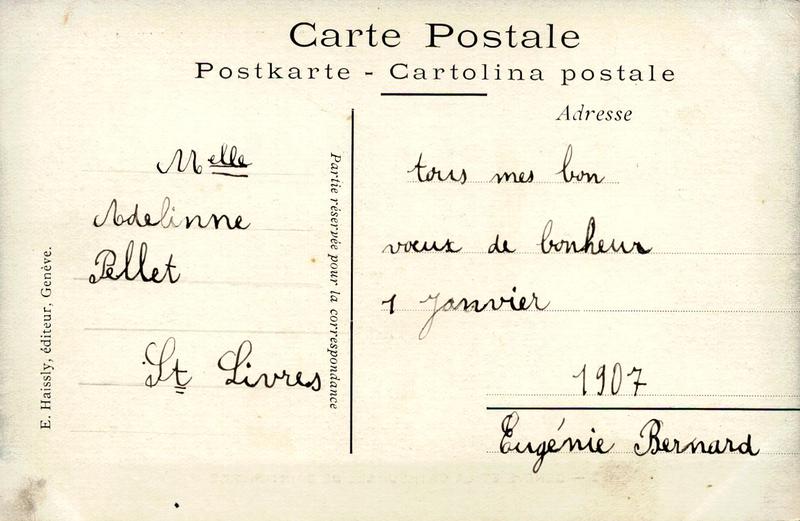 Carte Postale
Postkarte - Cartolina postale
Adresse
Melle
Adelinne
Pellet
St Livres
Partie réservée pour la correspondance
E. Haissly, éditeur, Genève.
tous mes bon
vœux de bonheur
1 Janvier
1907
Eugénie Bernard